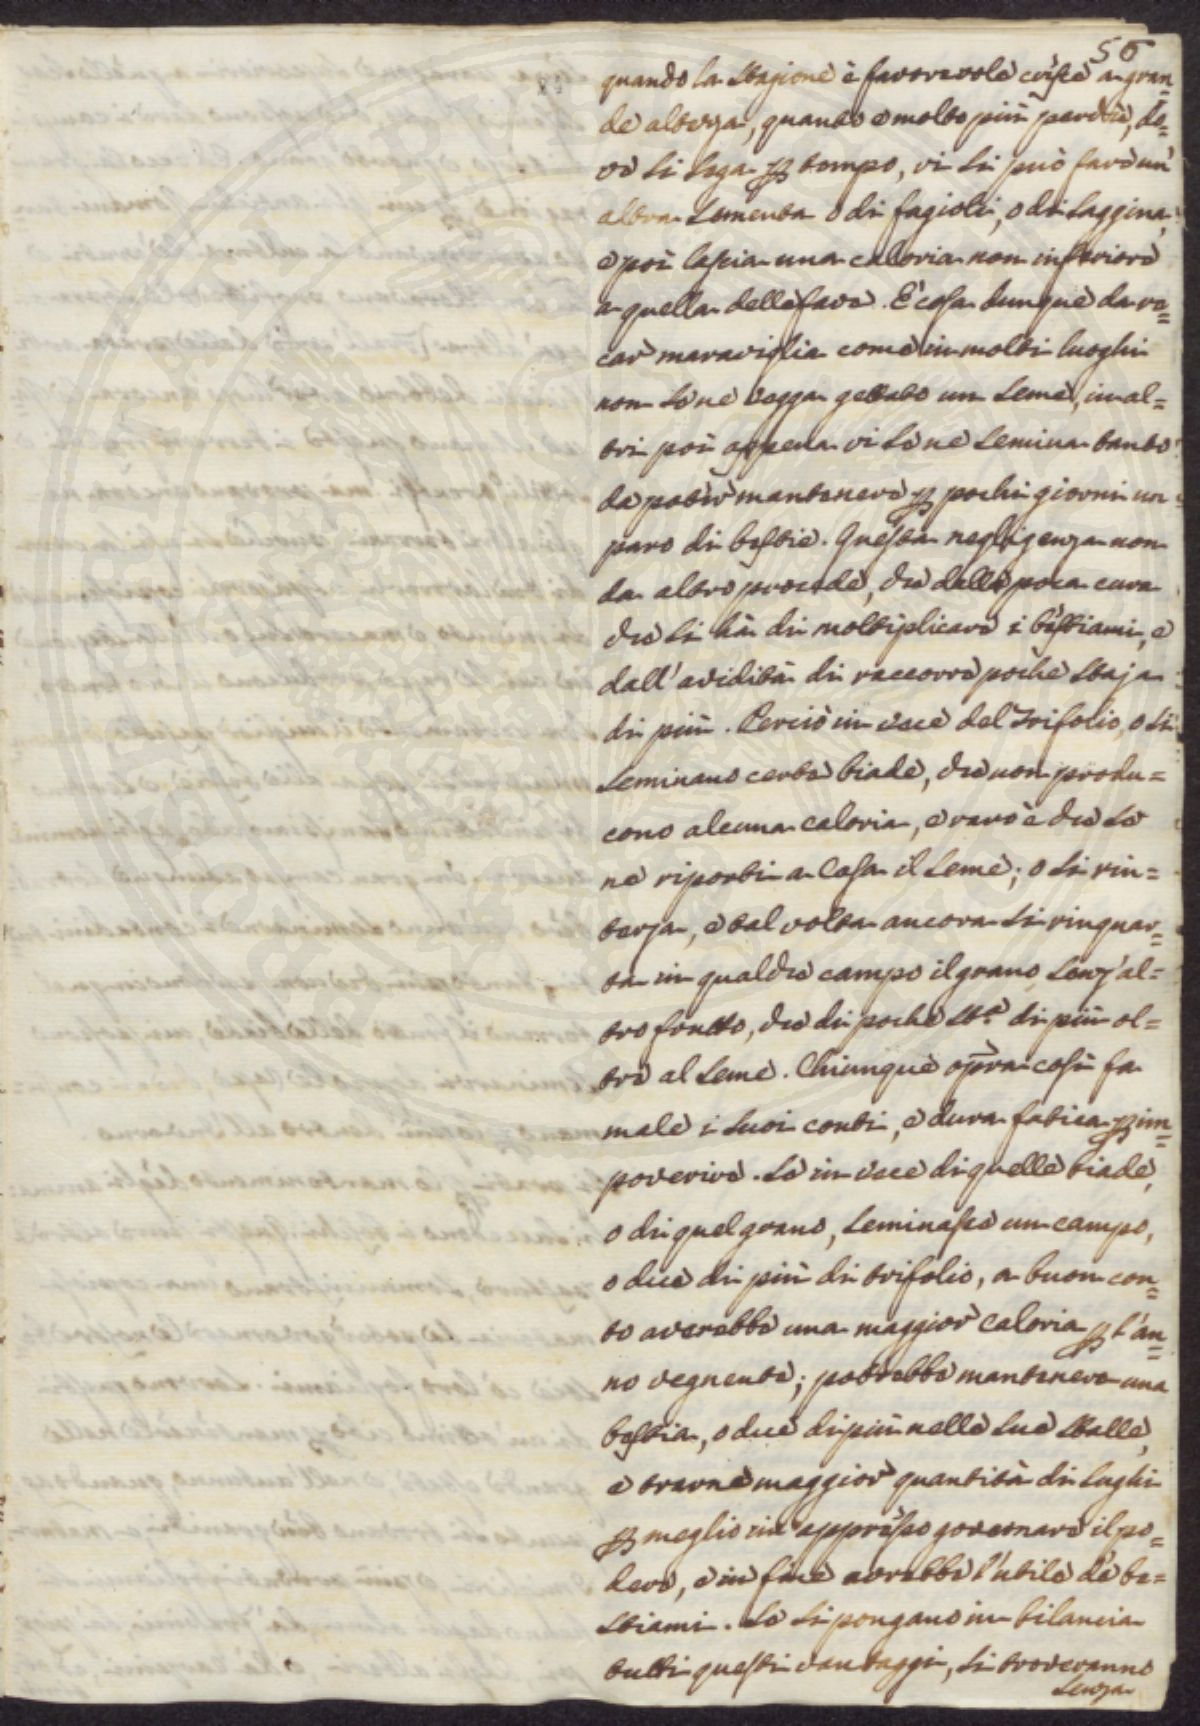 56
quando la stagione è favorevole cresce a gran=
de altezza, quanto e molto più perchè, do=
ve si sega ꝑ tempo, vi si può fare un'
altra sementa o di fagioli, o di saggina,
e poi lascia una caloria non inferiore
a quella delle fave. È cosa dunque da re=
car maraviglia come in molti luoghi
non se ne vegga gettato un seme, in al=
tri poi appena vi se ne semina tanto
da poter mantenere ꝑ pochi giorni un
paro di bestie. Questa negligenza non
da altro procede, che dalla poca cura
che si hà di moltiplicare i bestiami, e
dall' avidità di raccorre poche staja
di più. Perciò in vece del Trifolio, o si
seminano certe biade, che non produ=
cono alcuna caloria, e raro è che se
ne riporti a Casa il seme; o si rin=
terza, e tal volta ancora si rinquar=
ta in qualche campo il grano, senz' al=
tro frutto, che di poche st.ª di più ol=
tre al seme. Chiunque opra così fa
male i suoi conti, e dura fatica ꝑ im=
poverire. Se in vece di quelle biade,
o di quel grano, seminasse un campo,
o due di più di trifolio, a buon con=
to averebbe una maggior caloria ꝑ l'an=
no vegnente; potrebbe mantenere una
bestia, o due di più nelle sue stalle,
e trarne maggior quantità di sughi
ꝑ meglio in appresso governare il po=
dere, e in fine avrebbe l'utile de be=
stiami. Se si pongano in bilancia
tutti questi vantaggi, si troveranno
senza